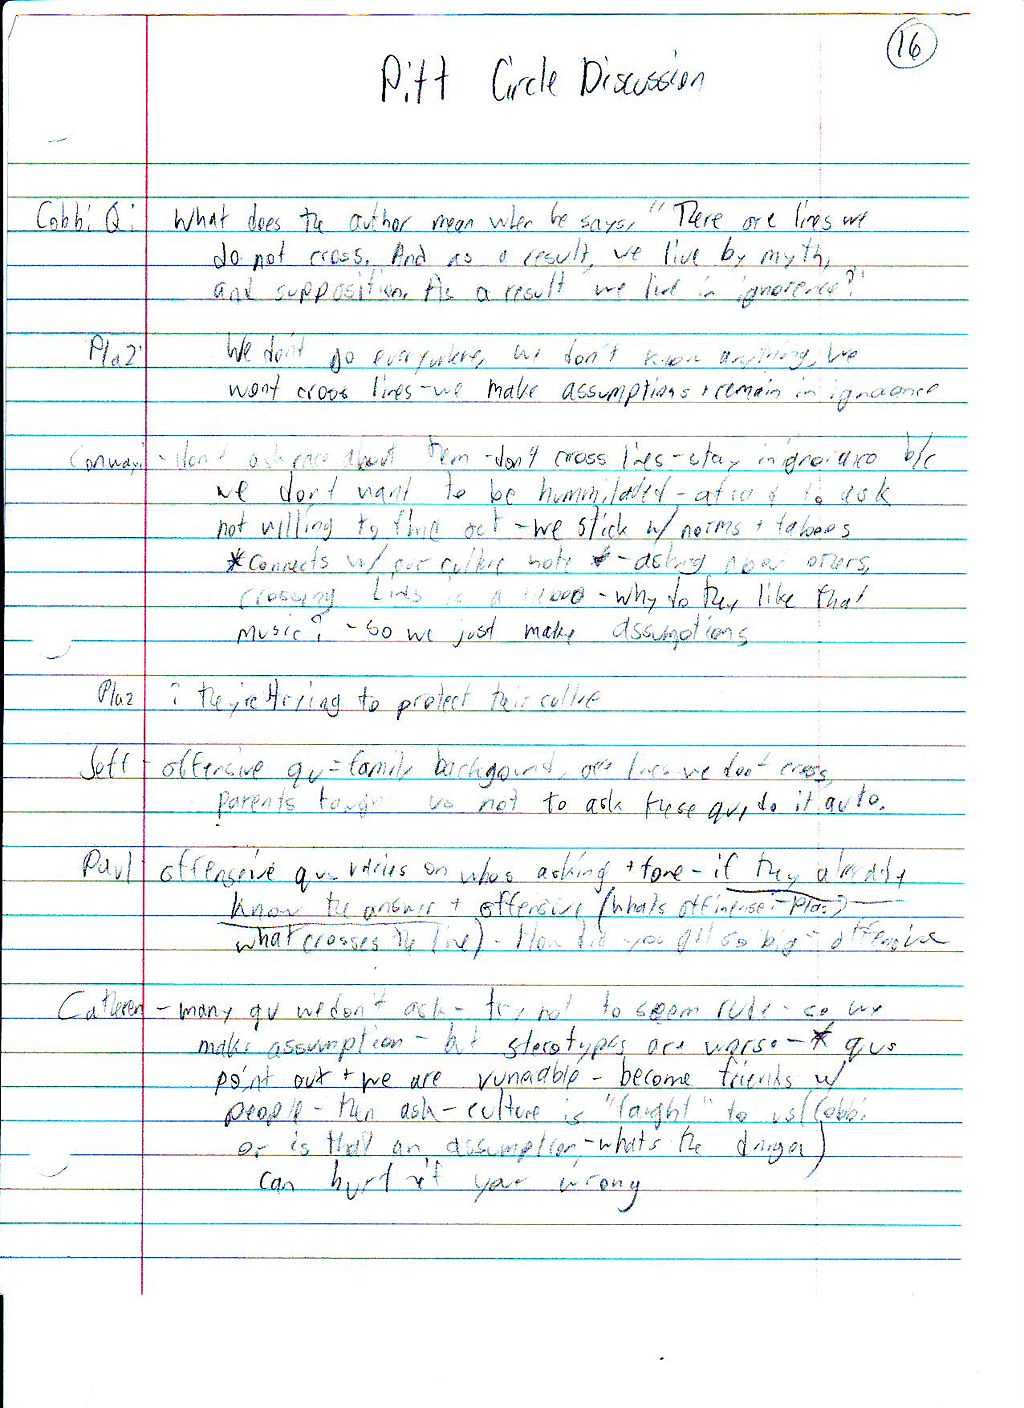 16
Pitt Circle Discussion
Cobbi Q: What does the author mean when he says, "There are lines we
do not cross. And as a result, we live by myth,
and supposition. As a result we live in ignorence?"
Plaz: We don't go everywhere, we don't know anything, we
wont cross lines - we make assumptions + remain in ignorance
Conway: - don't ask about them - don't cross lines - stay in b/c
we don't want to be hummilated - afraid to ask
not willing to find out - we stick w/ norms + taboos
*connects w/ our culture note - asking about others,
crossing lines is a taboo - why do they like that
music? - so we just make assumptions
Plaz ? they're trying to protect their cultre
Jeff - offensive qu = family backgound, are lines we don't cross,
parents taught us not to ask these qu, do it auto.
Paul - offenseive qus varies on whos asking + tone - if they already
know the answer + offensive (whats offinense: Plaz)
what crosses the line) - How did you get so big - offensive
Catheren - many qu we don't ask - try not to seem rude - so we
make assumption - but sterotypes are worse - * qus
point out + we are vunerable - become friends w/
people - then ask - culture is "taught" to us (Cobbi
or is that an assumption - whats the danger)
can hurt if your wrong